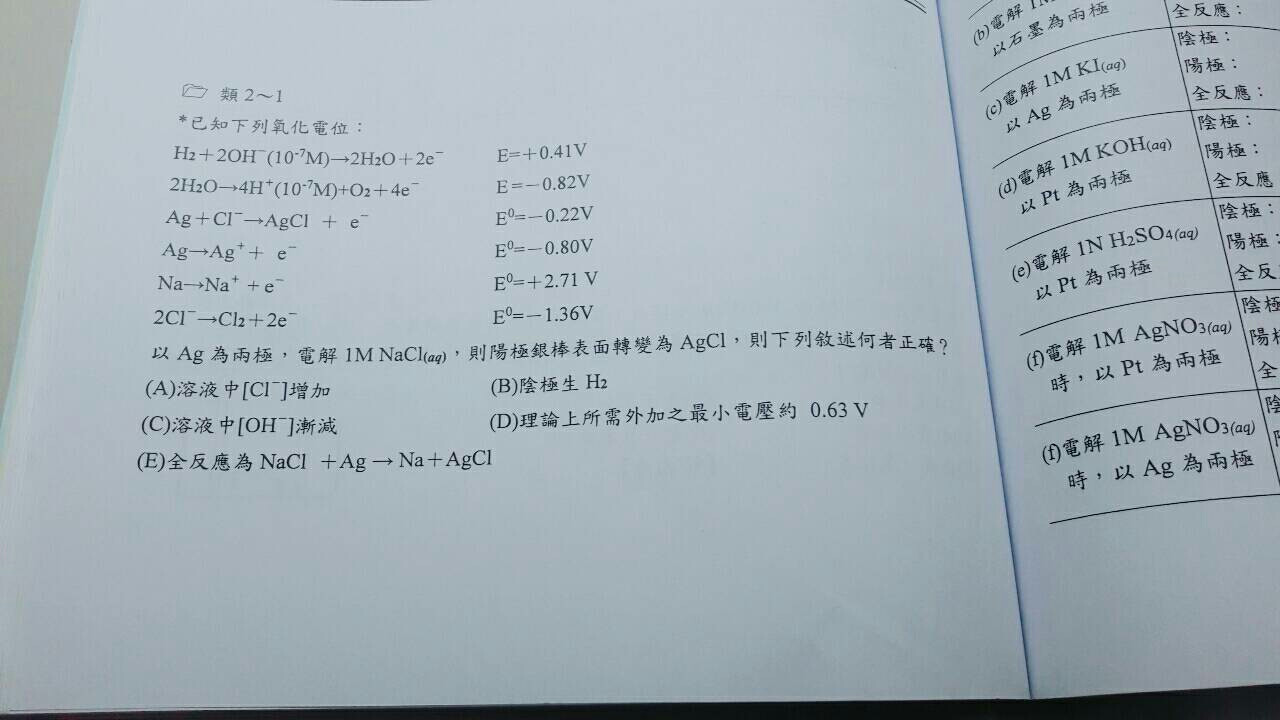 類 2～1
*已知下列氧化電位：
H₂＋2OH⁻(10⁻⁷M)→2H₂O＋2e⁻ E=＋0.41V
2H₂O→4H⁺(10⁻⁷M)+O₂＋4e⁻ E=－0.82V
Ag＋Cl⁻→AgCl ＋ e⁻ E⁰=－0.22V
Ag→Ag⁺＋ e⁻ E⁰=－0.80V
Na→Na⁺ ＋e⁻ E⁰=＋2.71 V
2Cl⁻→Cl₂＋2e⁻ E⁰=－1.36V
以 Ag 為兩極，電解 1M NaCl(aq)，則陽極銀棒表面轉變為 AgCl，則下列敘述何者正確？
(A)溶液中[Cl⁻]增加 (B)陰極生 H₂
(C)溶液中[OH⁻]漸減 (D)理論上所需外加之最小電壓約 0.63 V
(E)全反應為 NaCl ＋Ag → Na＋AgCl
(b)電解
以石墨為兩極
全反應：
(c)電解 1M KI(aq)
以 Ag 為兩極
陰極：
陽極：
全反應：
(d)電解 1M KOH(aq)
以 Pt 為兩極
陰極：
陽極：
全反應
(e)電解 1N H₂SO₄(aq)
以 Pt 為兩極
陰極：
陽極：
全反
(f)電解 1M AgNO₃(aq)
時，以 Pt 為兩極
陰極
陽
全
(f)電解 1M AgNO₃(aq)
時，以 Ag 為兩極